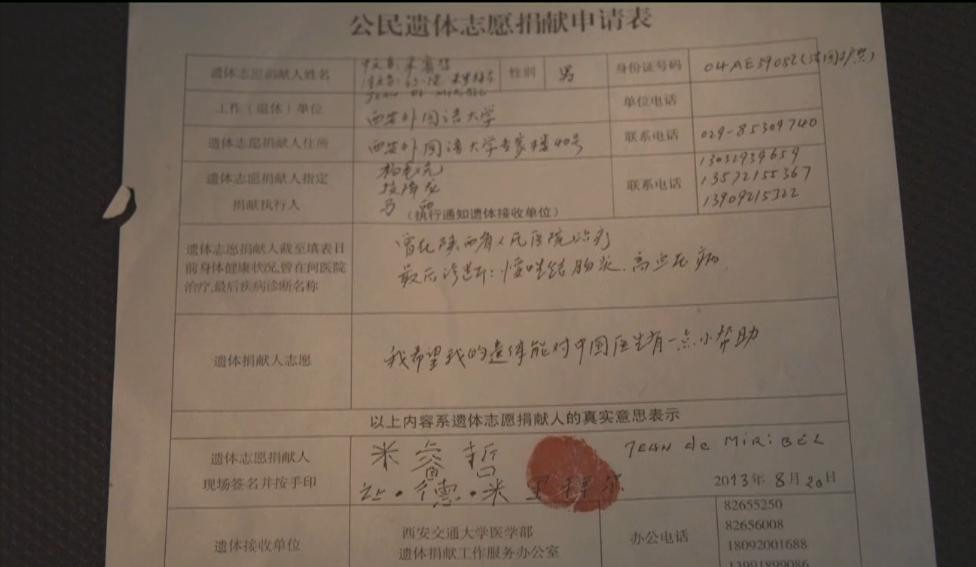 公民遗体志愿捐献申请表
遗体志愿捐献人姓名 中文名:米睿哲 性别 男 身份证号码 04AE59052(法国护照)
JEAN DE MIRIBEL
工作（退休）单位 西安外国语大学 单位电话
遗体志愿捐献人住所 西安外国语大学专家楼40号 联系电话 029-85309740
遗体志愿捐献人指定
捐献执行人
马 (执行通知遗体接收单位)
联系电话
13032934659
13572155367
13909215322
遗体志愿捐献人截至填表日
前身体健康状况,曾在何医院
治疗,最后疾病诊断名称
曾在陕西省人民医院治疗
最后诊断:慢性结肠炎、高血压病
遗体捐献人志愿 我希望我的遗体能对中国医生有一点小帮助
以上内容系遗体志愿捐献人的真实意思表示
遗体志愿捐献人
现场签名并按手印
米睿哲 JEAN de MiRiBEL
让·德·米里拜尔 2013年8月20日
遗体接收单位
西安交通大学医学部
遗体捐献工作服务办公室
办公电话
82655250
82656008
18092001688
13991899086